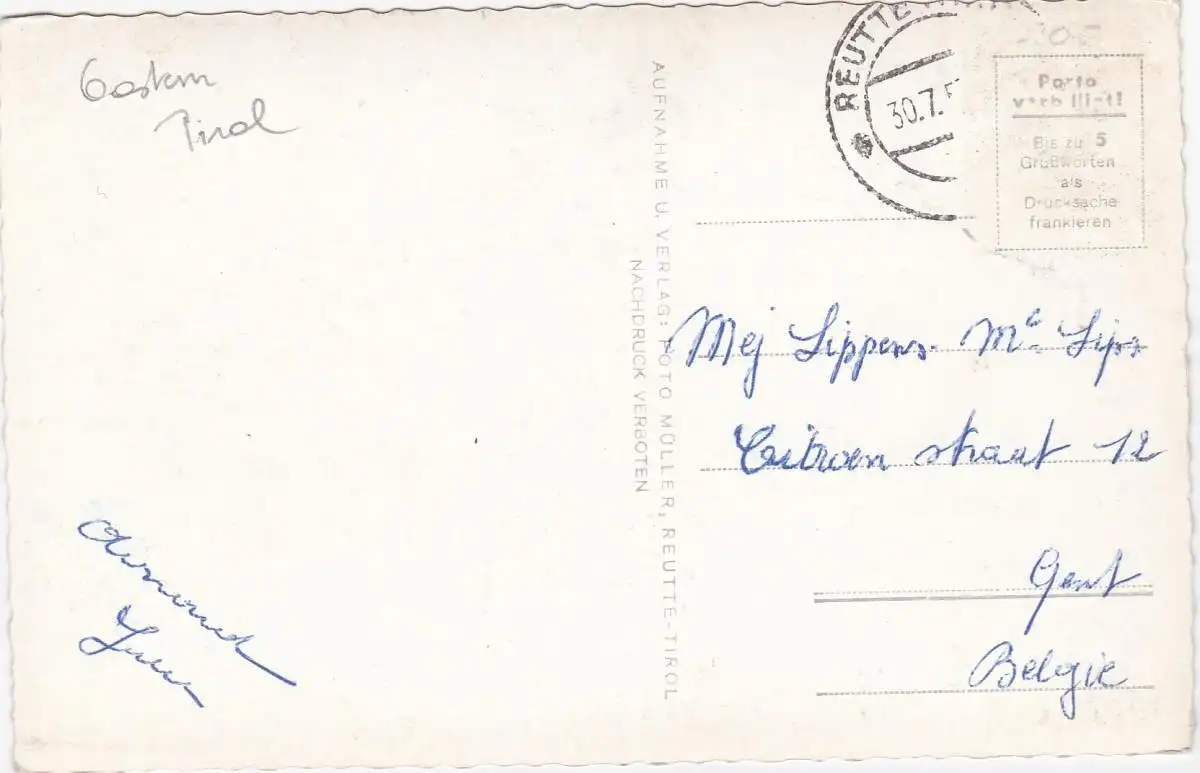 Tirol
Armand
AUFNAHME U. VERLAG: FOTO MÜLLER, REUTTE-TIROL
NACHDRUCK VERBOTEN
REUTTE
30.7.5
Porto
verbilligt!
Bis zu 5
Grußworten
als
Drucksache
frankieren
Mej Lippens Me Lips
Citroen straat 12
Gent
Belgie